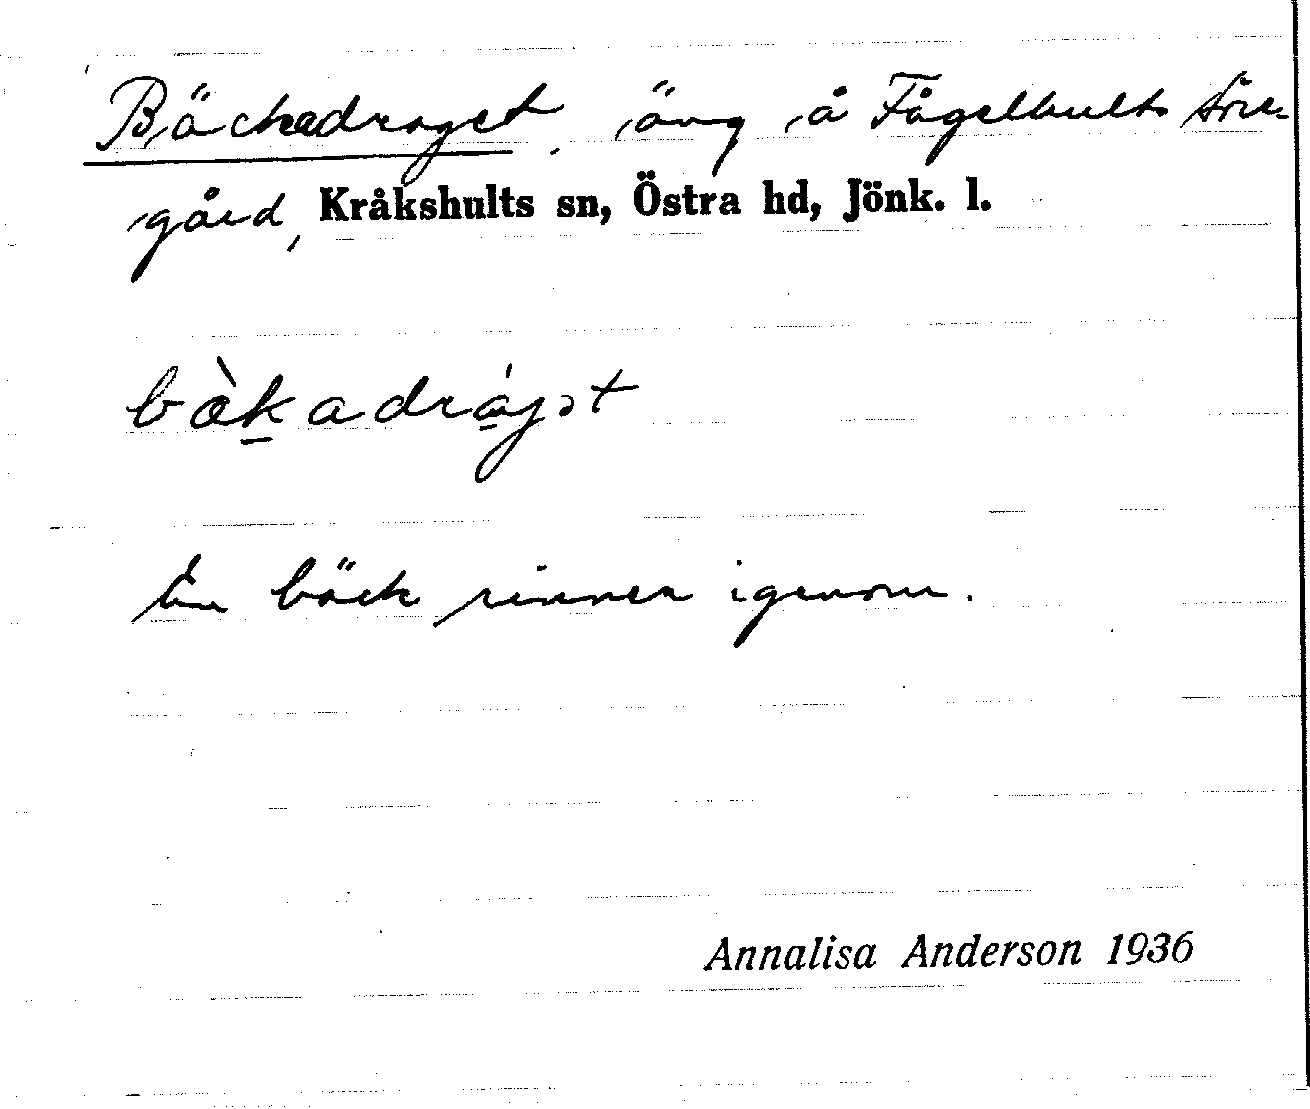 Bäckadraget, äng å Fågelhults Söre-
gård, Kråkshults sn, Östra hd, Jönk. l.
bæ̀kadrágət
En bäck rinner igenom.
Annalisa Anderson 1936